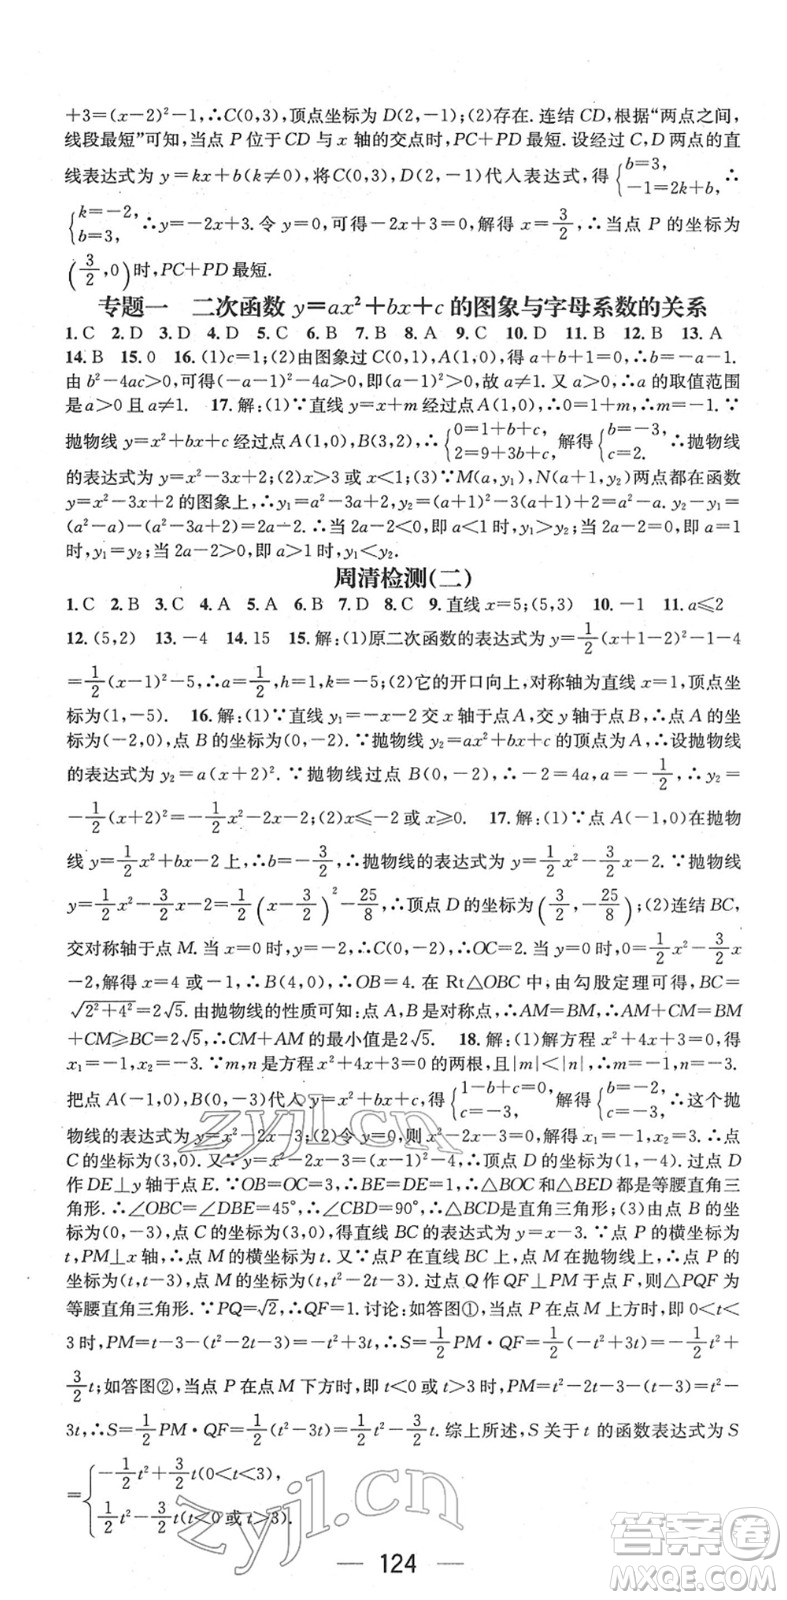 +3=(x-2)²-1,∴C(0,3),顶点坐标为D(2,-1);(2)存在.连结CD,根据“两点之间,
线段最短”可知,当点P位于CD与x轴的交点时,PC+PD最短.设经过C,D两点的直
线表达式为y=kx+b(k≠0),将C(0,3),D(2,-1)代人表达式,得{b=3, -1=2k+b,∴
{k=-2, b=3,∴y=-2x+3.令y=0,可得-2x+3=0,解得x=3/2,∴当点P的坐标为
(3/2,0)时,PC+PD最短.
专题一 二次函数y=ax²+bx+c的图象与字母系数的关系
1.C 2.D 3.D 4.D 5.D 6.B 7.B 8.A 9.C 10.D 11.B 12.B 13.A
14.B 15.0 16.(1)c=1;(2)由图象过C(0,1),A(1,0),得a+b+1=0,∴b=-a-1.
由b²-4ac>0,可得(-a-1)²-4a>0,即(a-1)²>0,故a≠1.又a>0,∴a的取值范围
是a>0且a≠1. 17.解:(1)∵直线y=x+m经过点A(1,0),∴0=1+m,∴m=-1.∵
抛物线y=x²+bx+c经过点A(1,0),B(3,2),∴{0=1+b+c, 2=9+3b+c,解得{b=-3, c=2.∴抛物线
的表达式为y=x²-3x+2;(2)x>3或x<1;(3)∵M(a,y₁),N(a+1,y₂)两点都在函数
y=x²-3x+2的图象上,∴y₁=a²-3a+2,y₂=(a+1)²-3(a+1)+2=a²-a.y₂-y₁=
(a²-a)-(a²-3a+2)=2a-2.∴当2a-2<0,即a<1时,y₁>y₂;当2a-2=0,即a=1
时,y₁=y₂;当2a-2>0,即a>1时,y₁<y₂.
周清检测(二)
1.C 2.B 3.C 4.A 5.A 6.B 7.D 8.C 9.直线x=5;(5,3) 10.-1 11.a≤2
12.(5,2) 13.-4 14.15 15.解:(1)原二次函数的表达式为y=1/2(x+1-2)²-1-4
=1/2(x-1)²-5,∴a=1/2,h=1,k=-5;(2)它的开口向上,对称轴为直线x=1,顶点坐
标为(1,-5). 16.解:(1)∵直线y₁=-x-2交x轴于点A,交y轴于点B,∴点A的坐
标为(-2,0),点B的坐标为(0,-2).∵抛物线y₂=ax²+bx+c的顶点为A,∴设抛物线
的表达式为y₂=a(x+2)².∵抛物线过点B(0,-2),∴-2=4a,a=-1/2,∴y₂=
-1/2(x+2)²=-1/2x²-2x-2;(2)x≤-2或x≥0. 17.解:(1)∵点A(-1,0)在抛物
线y=1/2x²+bx-2上,∴b=-3/2,∴抛物线的表达式为y=1/2x²-3/2x-2.∵抛物线
y=1/2x²-3/2x-2=1/2(x-3/2)²-25/8,∴顶点D的坐标为(3/2,-25/8);(2)连结BC,
交对称轴于点M.当x=0时,y=-2,∴C(0,-2),∴OC=2.当y=0时,0=1/2x²-3/2x
-2,解得x=4或-1,∴B(4,0),∴OB=4.在Rt△OBC中,由勾股定理可得,BC=
√(2²+4²)=2√5.由抛物线的性质可知:点A,B是对称点,∴AM=BM,∴AM+CM=BM
+CM≥BC=2√5,∴CM+AM的最小值是2√5. 18.解:(1)解方程x²+4x+3=0,得
x₁=-1,x₂=-3.∵m,n是方程x²+4x+3=0的两根,且|m|<|n|,∴m=-1,n=-3.
把点A(-1,0),B(0,-3)代人y=x²+bx+c得{1-b+c=0, c=-3,解得{b=-2, c=-3,∴这个抛
物线的表达式为y=x²-2x-3;(2)令y=0,则x²-2x-3=0,解得x₁=-1,x₂=3,∴点
C的坐标为(3,0).又∵y=x²-2x-3=(x-1)²-4,∴顶点D的坐标为(1,-4).过点D
作DE⊥y轴于点E.∵OB=OC=3,∴BE=DE=1,∴△BOC和△BED都是等腰直角三
角形.∴∠OBC=∠DBE=45°,∴∠CBD=90°,∴△BCD是直角三角形;(3)由点B的坐
标为(0,-3),点C的坐标为(3,0),得直线BC的表达式为y=x-3.∵点P的横坐标为
t,PM⊥x轴,∴点M的横坐标为t.又∵点P在直线BC上,点M在抛物线上,∴点P的
坐标为(t,t-3),点M的坐标为(t,t²-2t-3).过点Q作QF⊥PM于点F,则△PQF为
等腰直角三角形.∵PQ=√2,∴QF=1.讨论:如答图①,当点P在点M上方时,即0<t<
3时,PM=t-3-(t²-2t-3)=-t²+3t,∴S=1/2PM·QF=1/2(-t²+3t)=-1/2t²+
3/2t;如答图②,当点P在点M下方时,即t<0或t>3时,PM=t²-2t-3-(t-3)=t²-
3t,∴S=1/2PM·QF=1/2(t²-3t)=1/2t²-3/2t.综上所述,S关于t的函数表达式为S
={-1/2t²+3/2t(0<t<3),
1/2t²-3/2t(t<0或t>3).
124
zyjl.cn
zyjl.cn
答案圈
MXQE.COM